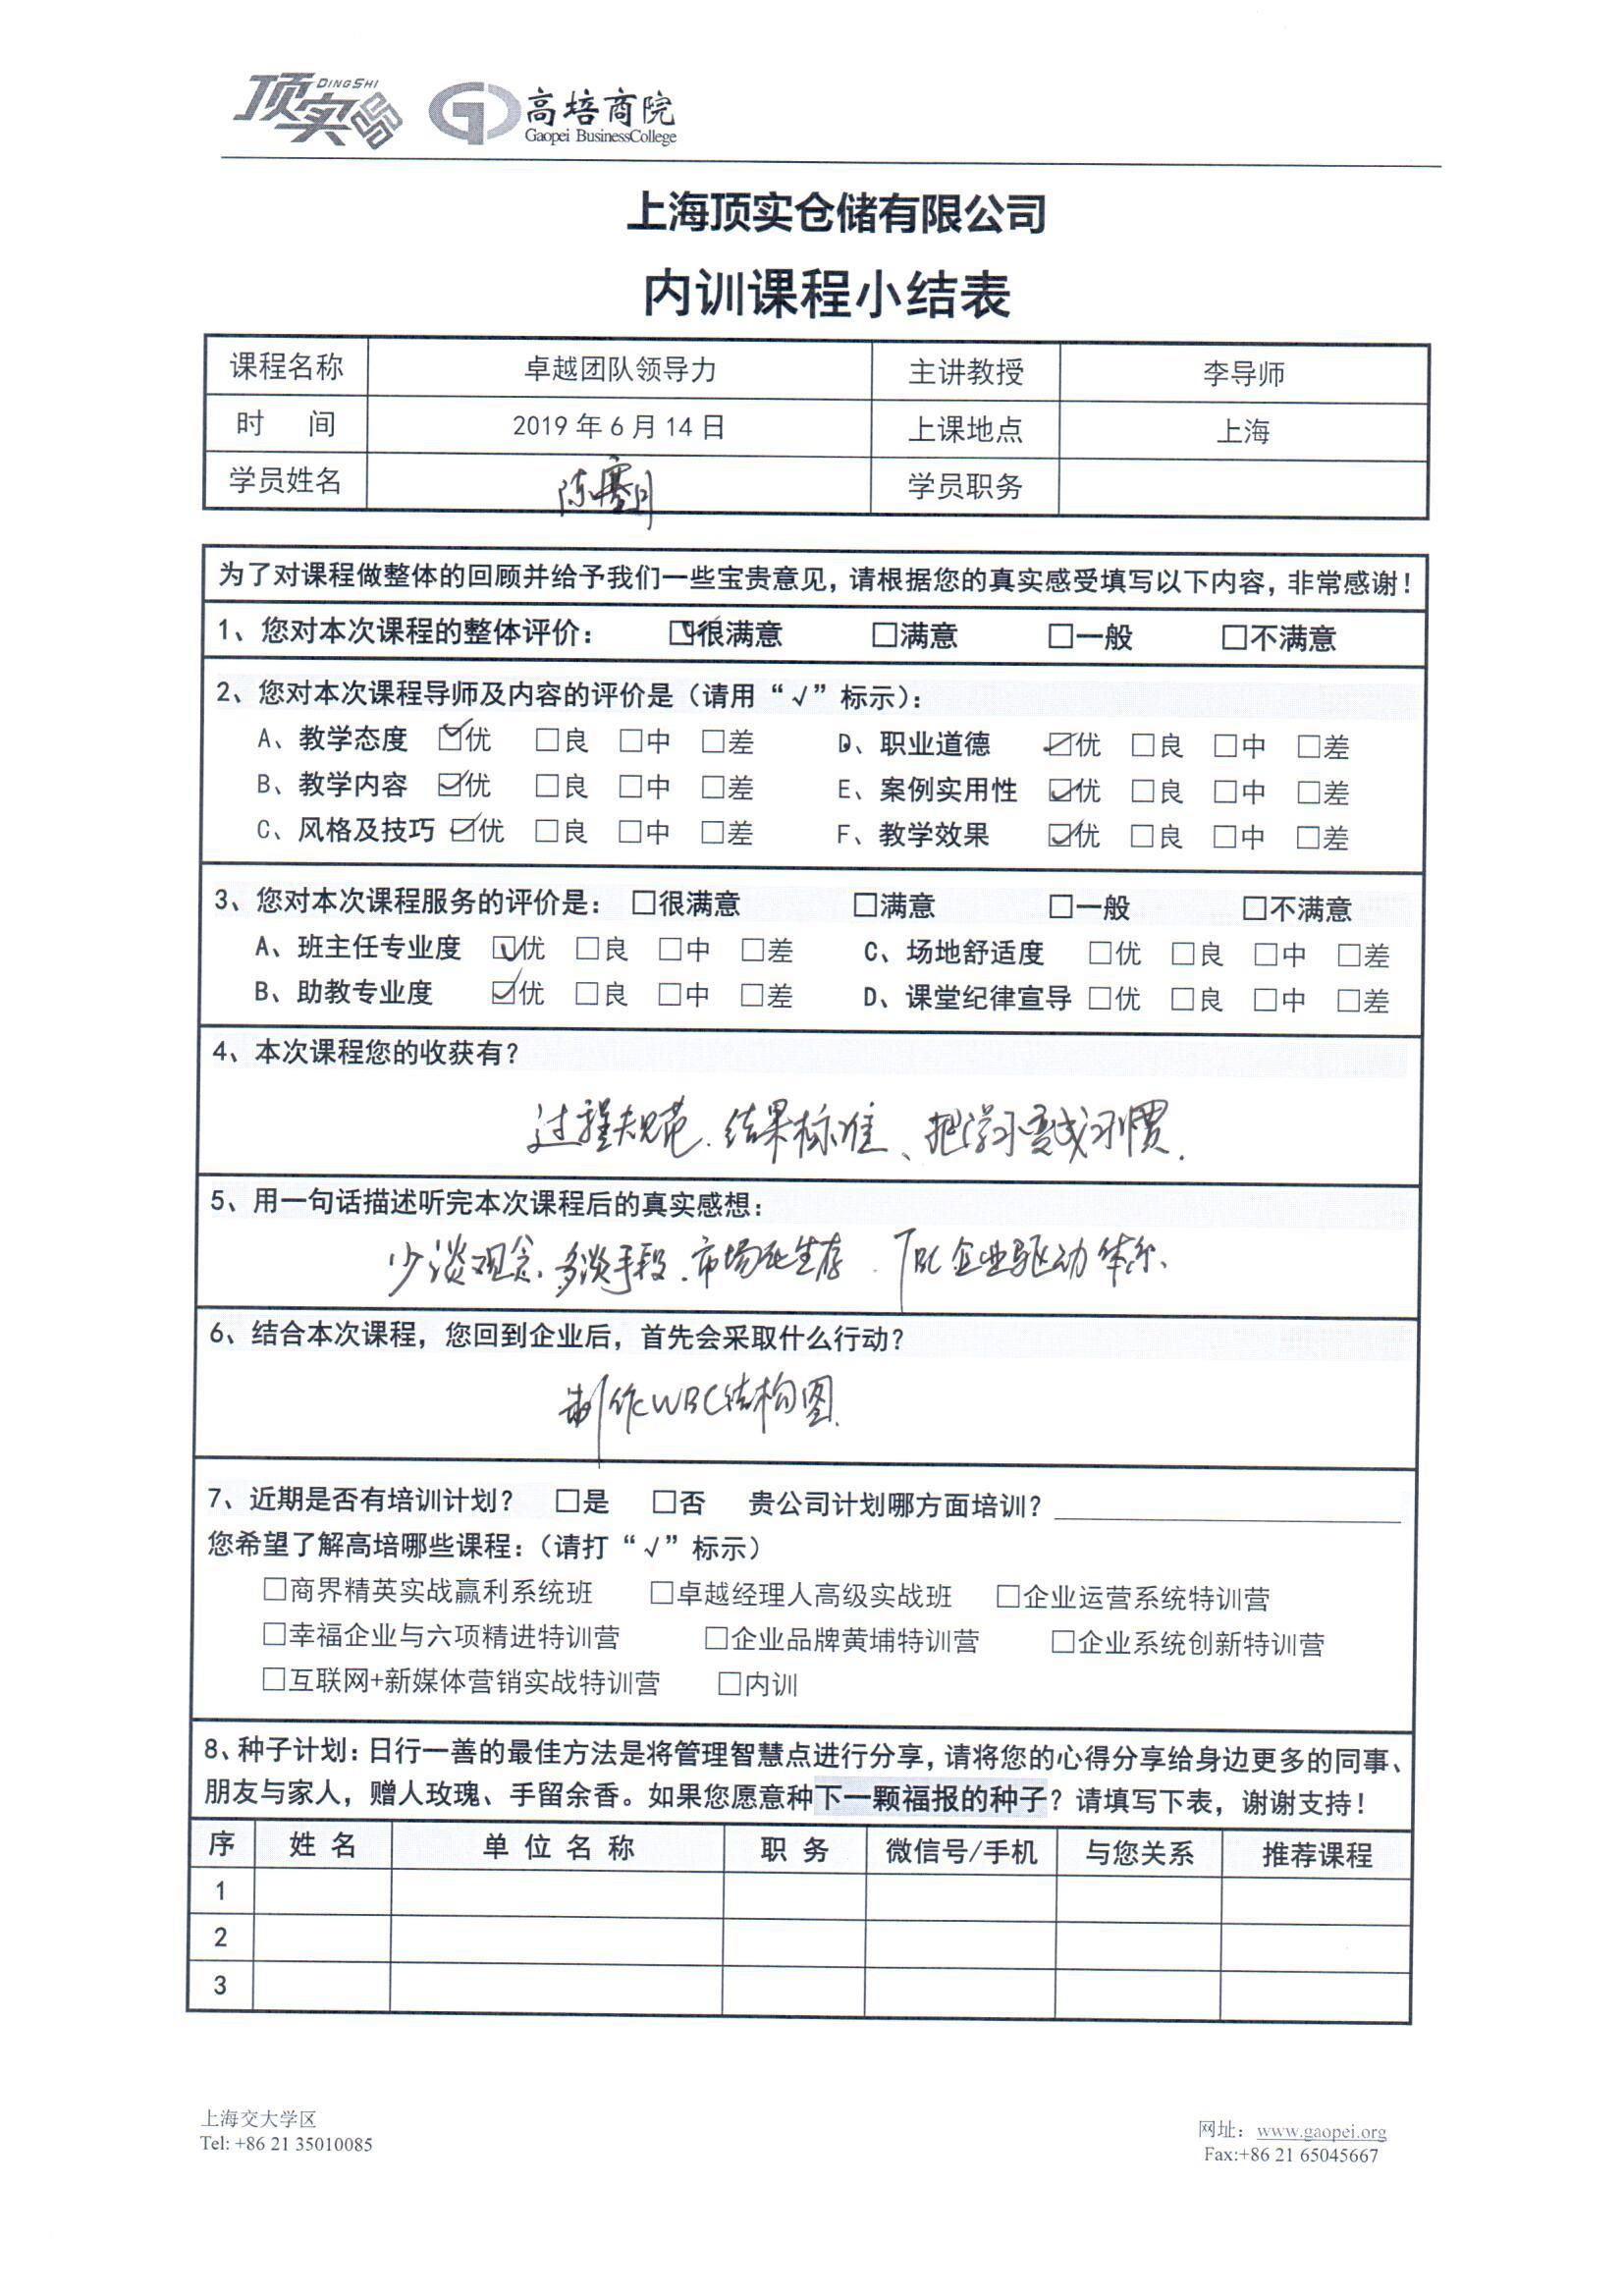 顶实 DINGSHI 高培商院
Gaopei BusinessCollege
上海顶实仓储有限公司
内训课程小结表
课程名称 卓越团队领导力 主讲教授 李导师
时 间 2019年6月14日 上课地点 上海
学员姓名 陈 学员职务
为了对课程做整体的回顾并给予我们一些宝贵意见，请根据您的真实感受填写以下内容，非常感谢！
1、您对本次课程的整体评价： ☑很满意 □满意 □一般 □不满意
2、您对本次课程导师及内容的评价是（请用“√”标示）：
A、教学态度 ☑优 □良 □中 □差 D、职业道德 ☑优 □良 □中 □差
B、教学内容 ☑优 □良 □中 □差 E、案例实用性 ☑优 □良 □中 □差
C、风格及技巧 ☑优 □良 □中 □差 F、教学效果 ☑优 □良 □中 □差
3、您对本次课程服务的评价是： □很满意 □满意 □一般 □不满意
A、班主任专业度 ☑优 □良 □中 □差 C、场地舒适度 □优 □良 □中 □差
B、助教专业度 ☑优 □良 □中 □差 D、课堂纪律宣导 □优 □良 □中 □差
4、本次课程您的收获有？
过程规范、结果标准、把学习变成习惯.
5、用一句话描述听完本次课程后的真实感想：
少谈观念、多谈手段、市场 生存. 企业驱动体系、
6、结合本次课程，您回到企业后，首先会采取什么行动？
制作WBC结构图.
7、近期是否有培训计划？ □是 □否 贵公司计划哪方面培训？
您希望了解高培哪些课程：（请打“√”标示）
□商界精英实战赢利系统班 □卓越经理人高级实战班 □企业运营系统特训营
□幸福企业与六项精进特训营 □企业品牌黄埔特训营 □企业系统创新特训营
□互联网+新媒体营销实战特训营 □内训
8、种子计划：日行一善的最佳方法是将管理智慧点进行分享，请将您的心得分享给身边更多的同事、
朋友与家人，赠人玫瑰、手留余香。如果您愿意种下一颗福报的种子？请填写下表，谢谢支持！
序 姓 名 单 位 名 称 职 务 微信号/手机 与您关系 推荐课程
1
2
3
上海交大学区
Tel: +86 21 35010085
网址：www.gaopei.org
Fax:+86 21 65045667